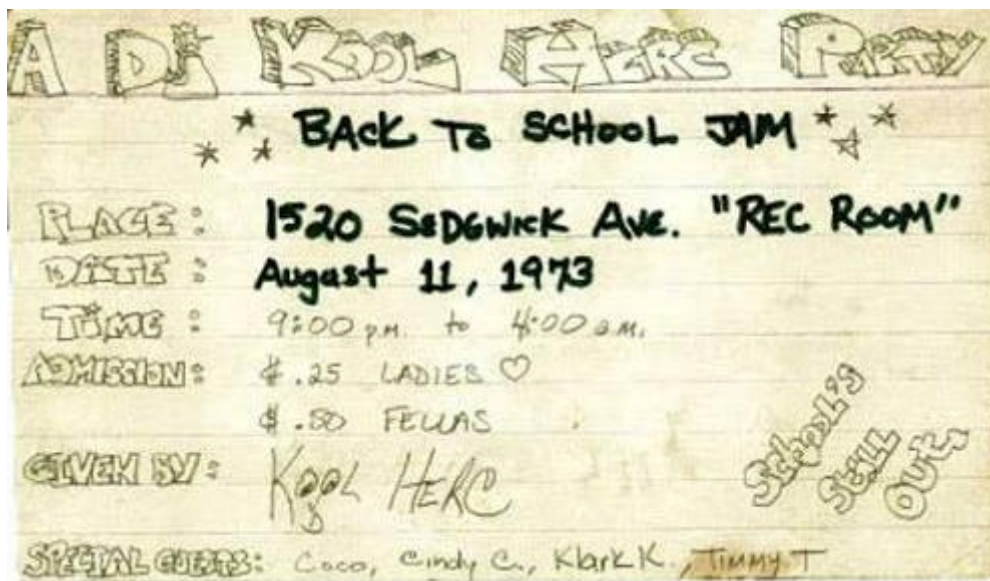 A DJ KOOL HERC PARTY
BACK TO SCHOOL JAM
PLACE: 1520 SEDGWICK AVE. "REC ROOM"
DATE: August 11, 1973
TIME: 9:00 pm. to 4:00 am.
ADMISSION: $.25 LADIES ♡
$.50 FELLAS
GIVEN BY: KOOL HERC
School's
Still
Out,
SPECIAL GUESTS: Coco, Cindy C., KlarkK., TIMMY T